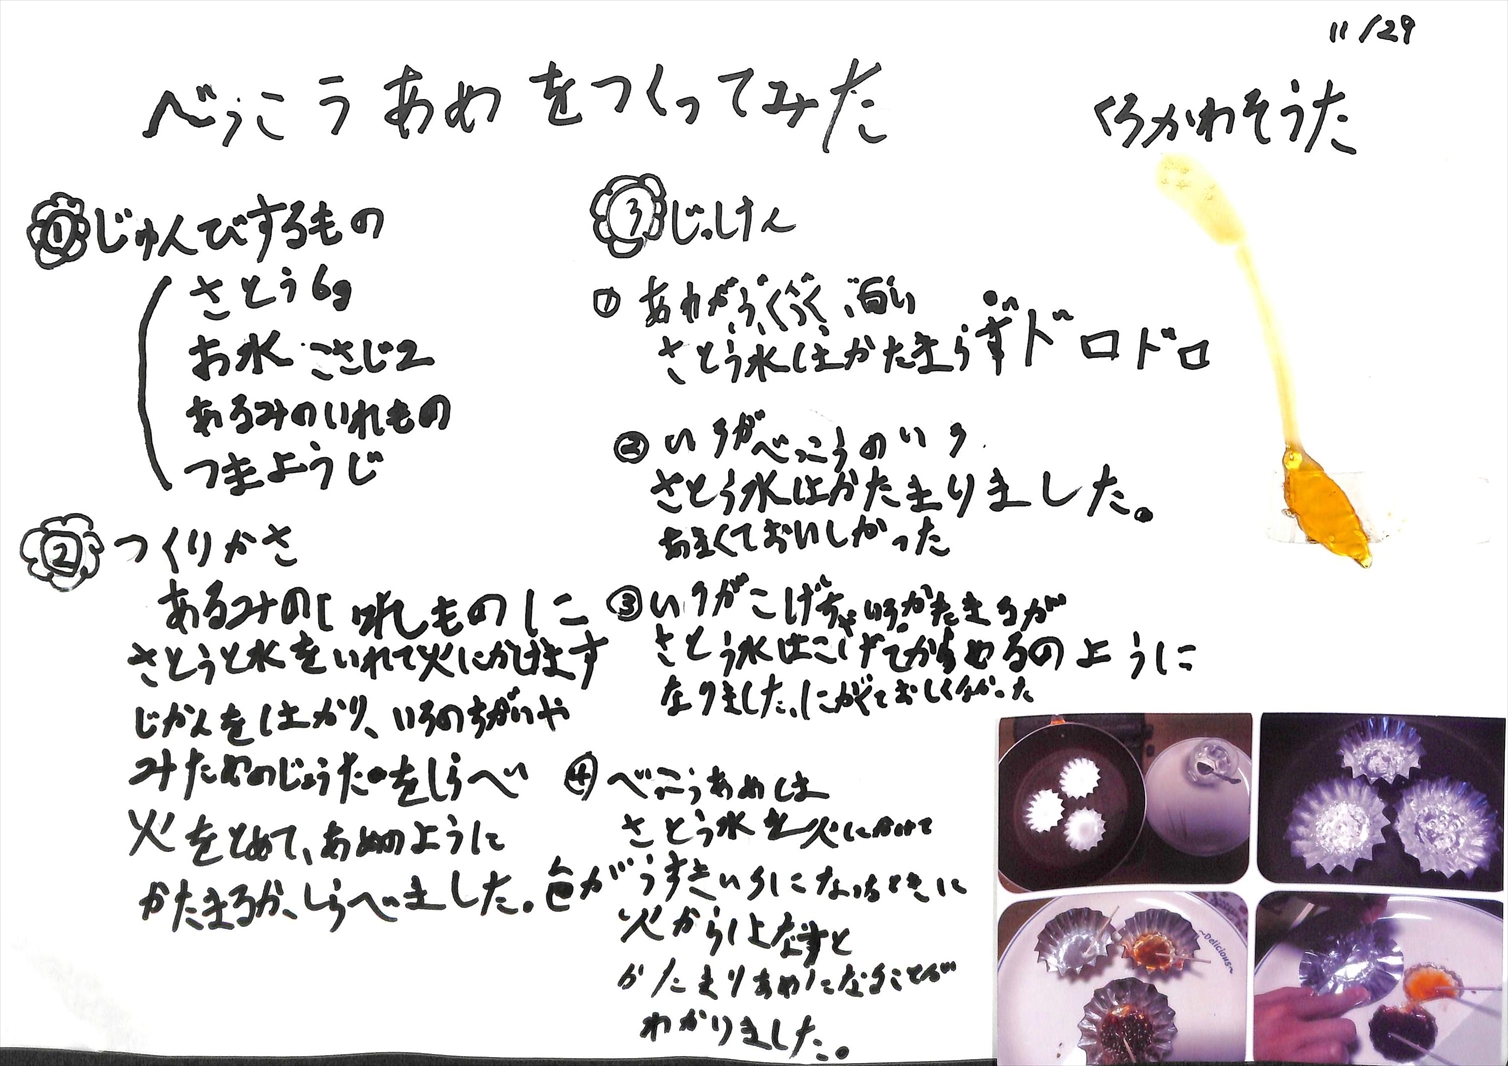 11/29
べっこうあめをつくってみた
くろかわそうた
① じゅんびするもの
さとう6g
お水 こさじ2
あるみのいれもの
つまようじ
② つくりかた
あるみのいれものに
さとうと水をいれて火にかけます
じかんをはかり、いろのちがいや
みためのじょうたいをしらべ
火をとめて、あめのように
かたまるか、しらべました。
③ じっけん
① あわがぶくぶく 白い
さとう水はかたまらずドロドロ
② いろがべっこうのいろ
さとう水はかたまりました。
あまくておいしかった
③ いろがこげちゃいろ。かたまるが
さとう水はこげてからめるのように
なりました。にがくておしくなかった
④ べっこうあめは
さとう水を火にかけて
色がうすきいろになったときに
火からはなすと
かたまりあめになることが
わかりました。
~Delicious~